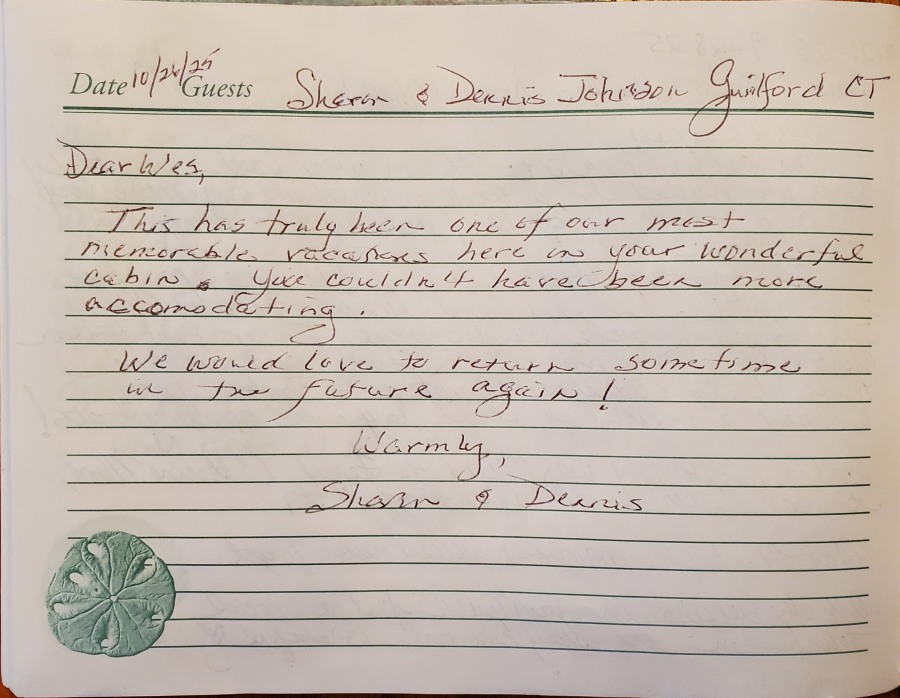 Date 10/26/25 Guests Sharon & Dennis Johnson Guilford CT
Dear Wes,
This has truly been one of our most
memorable vacations here in your wonderful
cabin. You couldn't have been more
accomodating.
We would love to return sometime
in the future again!
Warmly,
Sharon & Dennis